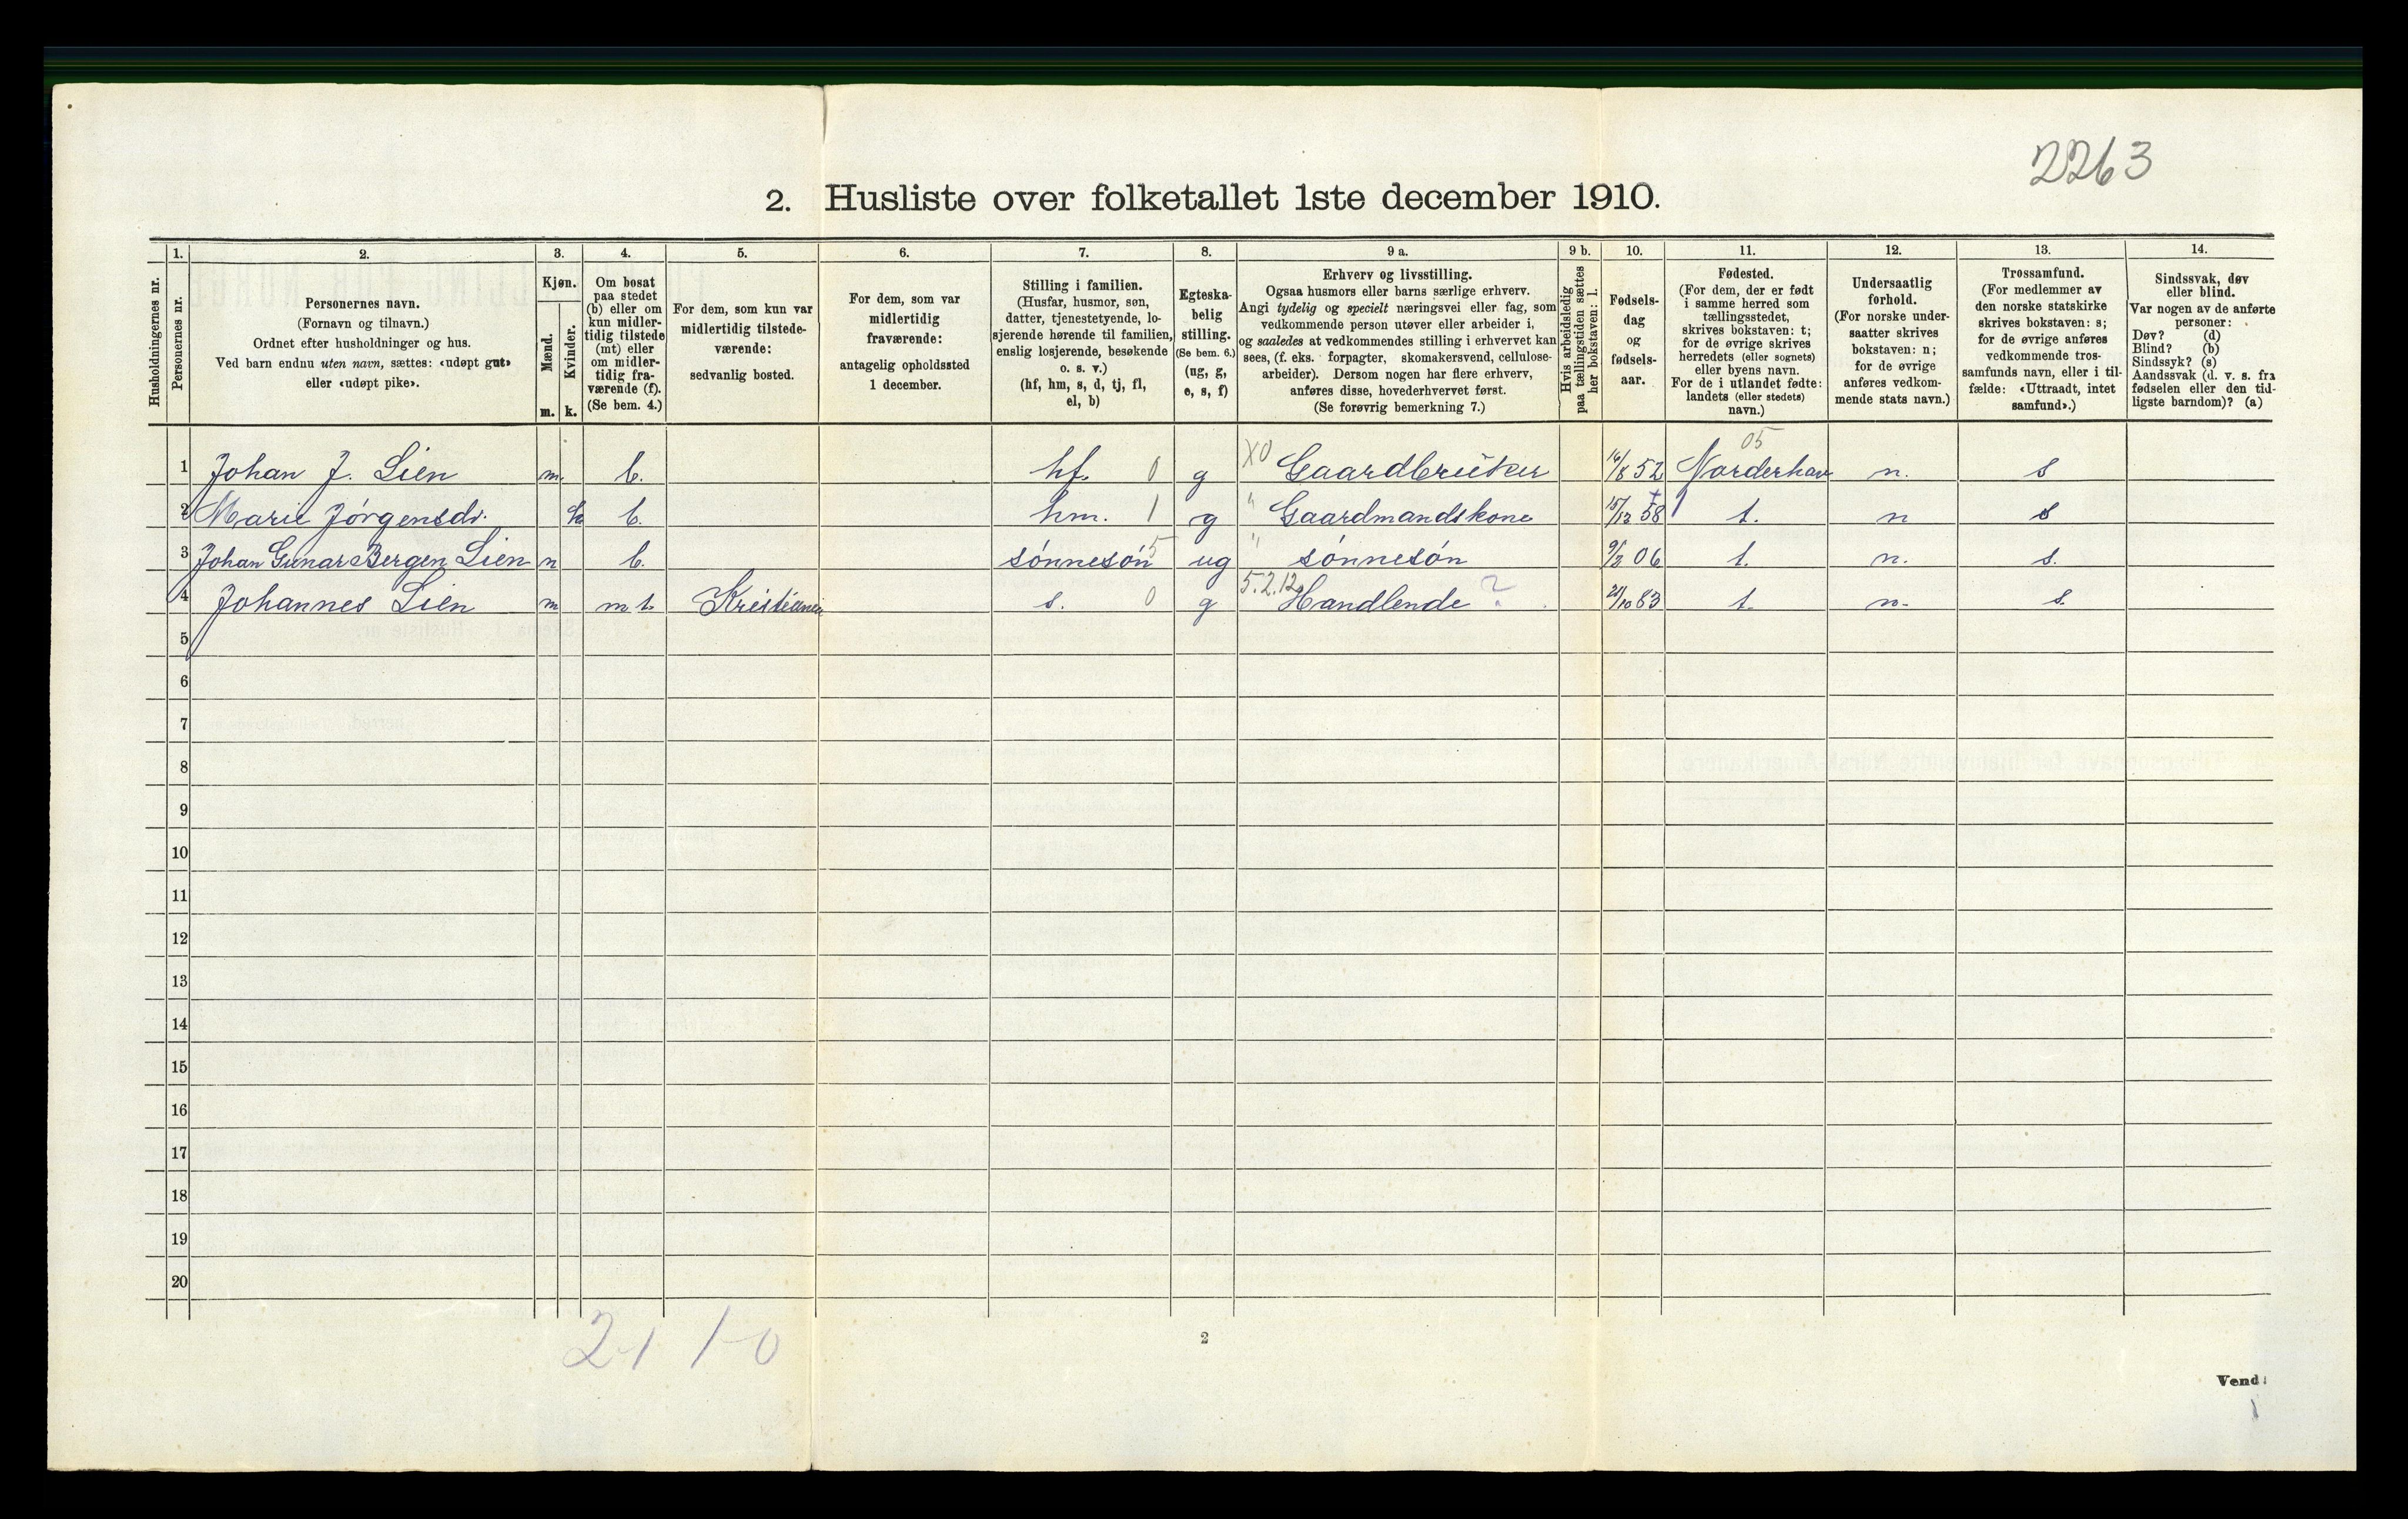 2263
2. Husliste over folketallet 1ste december 1910.
Husholdningernes nr.
1.
Personernes nr.
2.
Personernes navn.
(Fornavn og tilnavn.)
Ordnet efter husholdninger og hus.
Ved barn endnu uten navn, sættes: «udøpt gut»
eller «udøpt pike».
3.
Kjøn.
Mænd.
m.
Kvinder.
k.
4.
Om bosat
paa stedet
(b) eller om
kun midler-
tidig tilstede
(mt) eller
om midler-
tidig fra-
værende (f).
(Se bem. 4.)
5.
For dem, som kun var
midlertidig tilstede-
værende:
sedvanlig bosted.
6.
For dem, som var
midlertidig
fraværende:
antagelig opholdssted
1 december.
7.
Stilling i familien.
(Husfar, husmor, søn,
datter, tjenestetyende, lo-
sjerende hørende til familien,
enslig losjerende, besøkende
o. s. v.)
(hf, hm, s, d, tj, fl,
el, b)
8.
Egteska-
belig
stilling.
(Se bem. 6.)
(ug, g,
e, s, f)
9 a.
Erhverv og livsstilling.
Ogsaa husmors eller barns særlige erhverv.
Angi tydelig og specielt næringsvei eller fag, som
vedkommende person utøver eller arbeider i,
og saaledes at vedkommendes stilling i erhvervet kan
sees, (f. eks. forpagter, skomakersvend, cellulose-
arbeider). Dersom nogen har flere erhverv,
anføres disse, hovederhvervet først.
(Se forøvrig bemerkning 7.)
9 b.
Hvis arbeidsledig
paa tællingstiden sættes
her bokstaven: l.
10.
Fødsels-
dag
og
fødsels-
aar.
11.
Fødested.
(For dem, der er født
i samme herred som
tællingsstedet,
skrives bokstaven: t;
for de øvrige skrives
herredets (eller sognets)
eller byens navn.
For de i utlandet fødte:
landets (eller stedets)
navn.)
12.
Undersaatlig
forhold.
(For norske under-
saatter skrives
bokstaven: n;
for de øvrige
anføres vedkom-
mende stats navn.)
13.
Trossamfund.
(For medlemmer av
den norske statskirke
skrives bokstaven: s;
for de øvrige anføres
vedkommende tros-
samfunds navn, eller i til-
fælde: «Uttraadt, intet
samfund».)
14.
Sindssvak, døv
eller blind.
Var nogen av de anførte
personer:
Døv? (d)
Blind? (b)
Sindssyk? (s)
Aandssvak (d. v. s. fra
fødselen eller den tid-
ligste barndom)? (a)
05
1 Johan J. Lien m. b. hf. 0 g X0 Gaardbruker 16/8 52 Norderhov n. s
2 Marie Jørgensdr. k b. hm. 1 g " Gaardmandskone 15/12 58 t. n s
3 Johan Gunar Bergen Lien m b. sønnesøn 5 ug " sønnesøn 9/2 06 t. n. s.
4 Johannes Lien m m t. Kristiania s. 0 g 5.2.12 Handlende ? 21/10 83 t. n. s.
5
6
7
8
9
10
11
12
13
14
15
16
17
18
19
20
2-1 1-0
2
Vend!